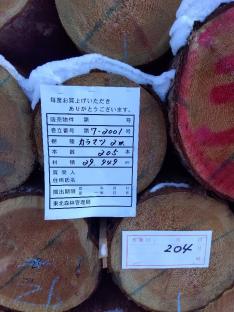 毎度お買上げいただき
ありがとうございます。
販売物件 第 号
巻立番号 第 7-2001 号
樹種 カラマツ 2m
本数 205 本
材積 29.949 m
買受人
住所氏名
搬出期限 年 月 日
東北森林管理局
204